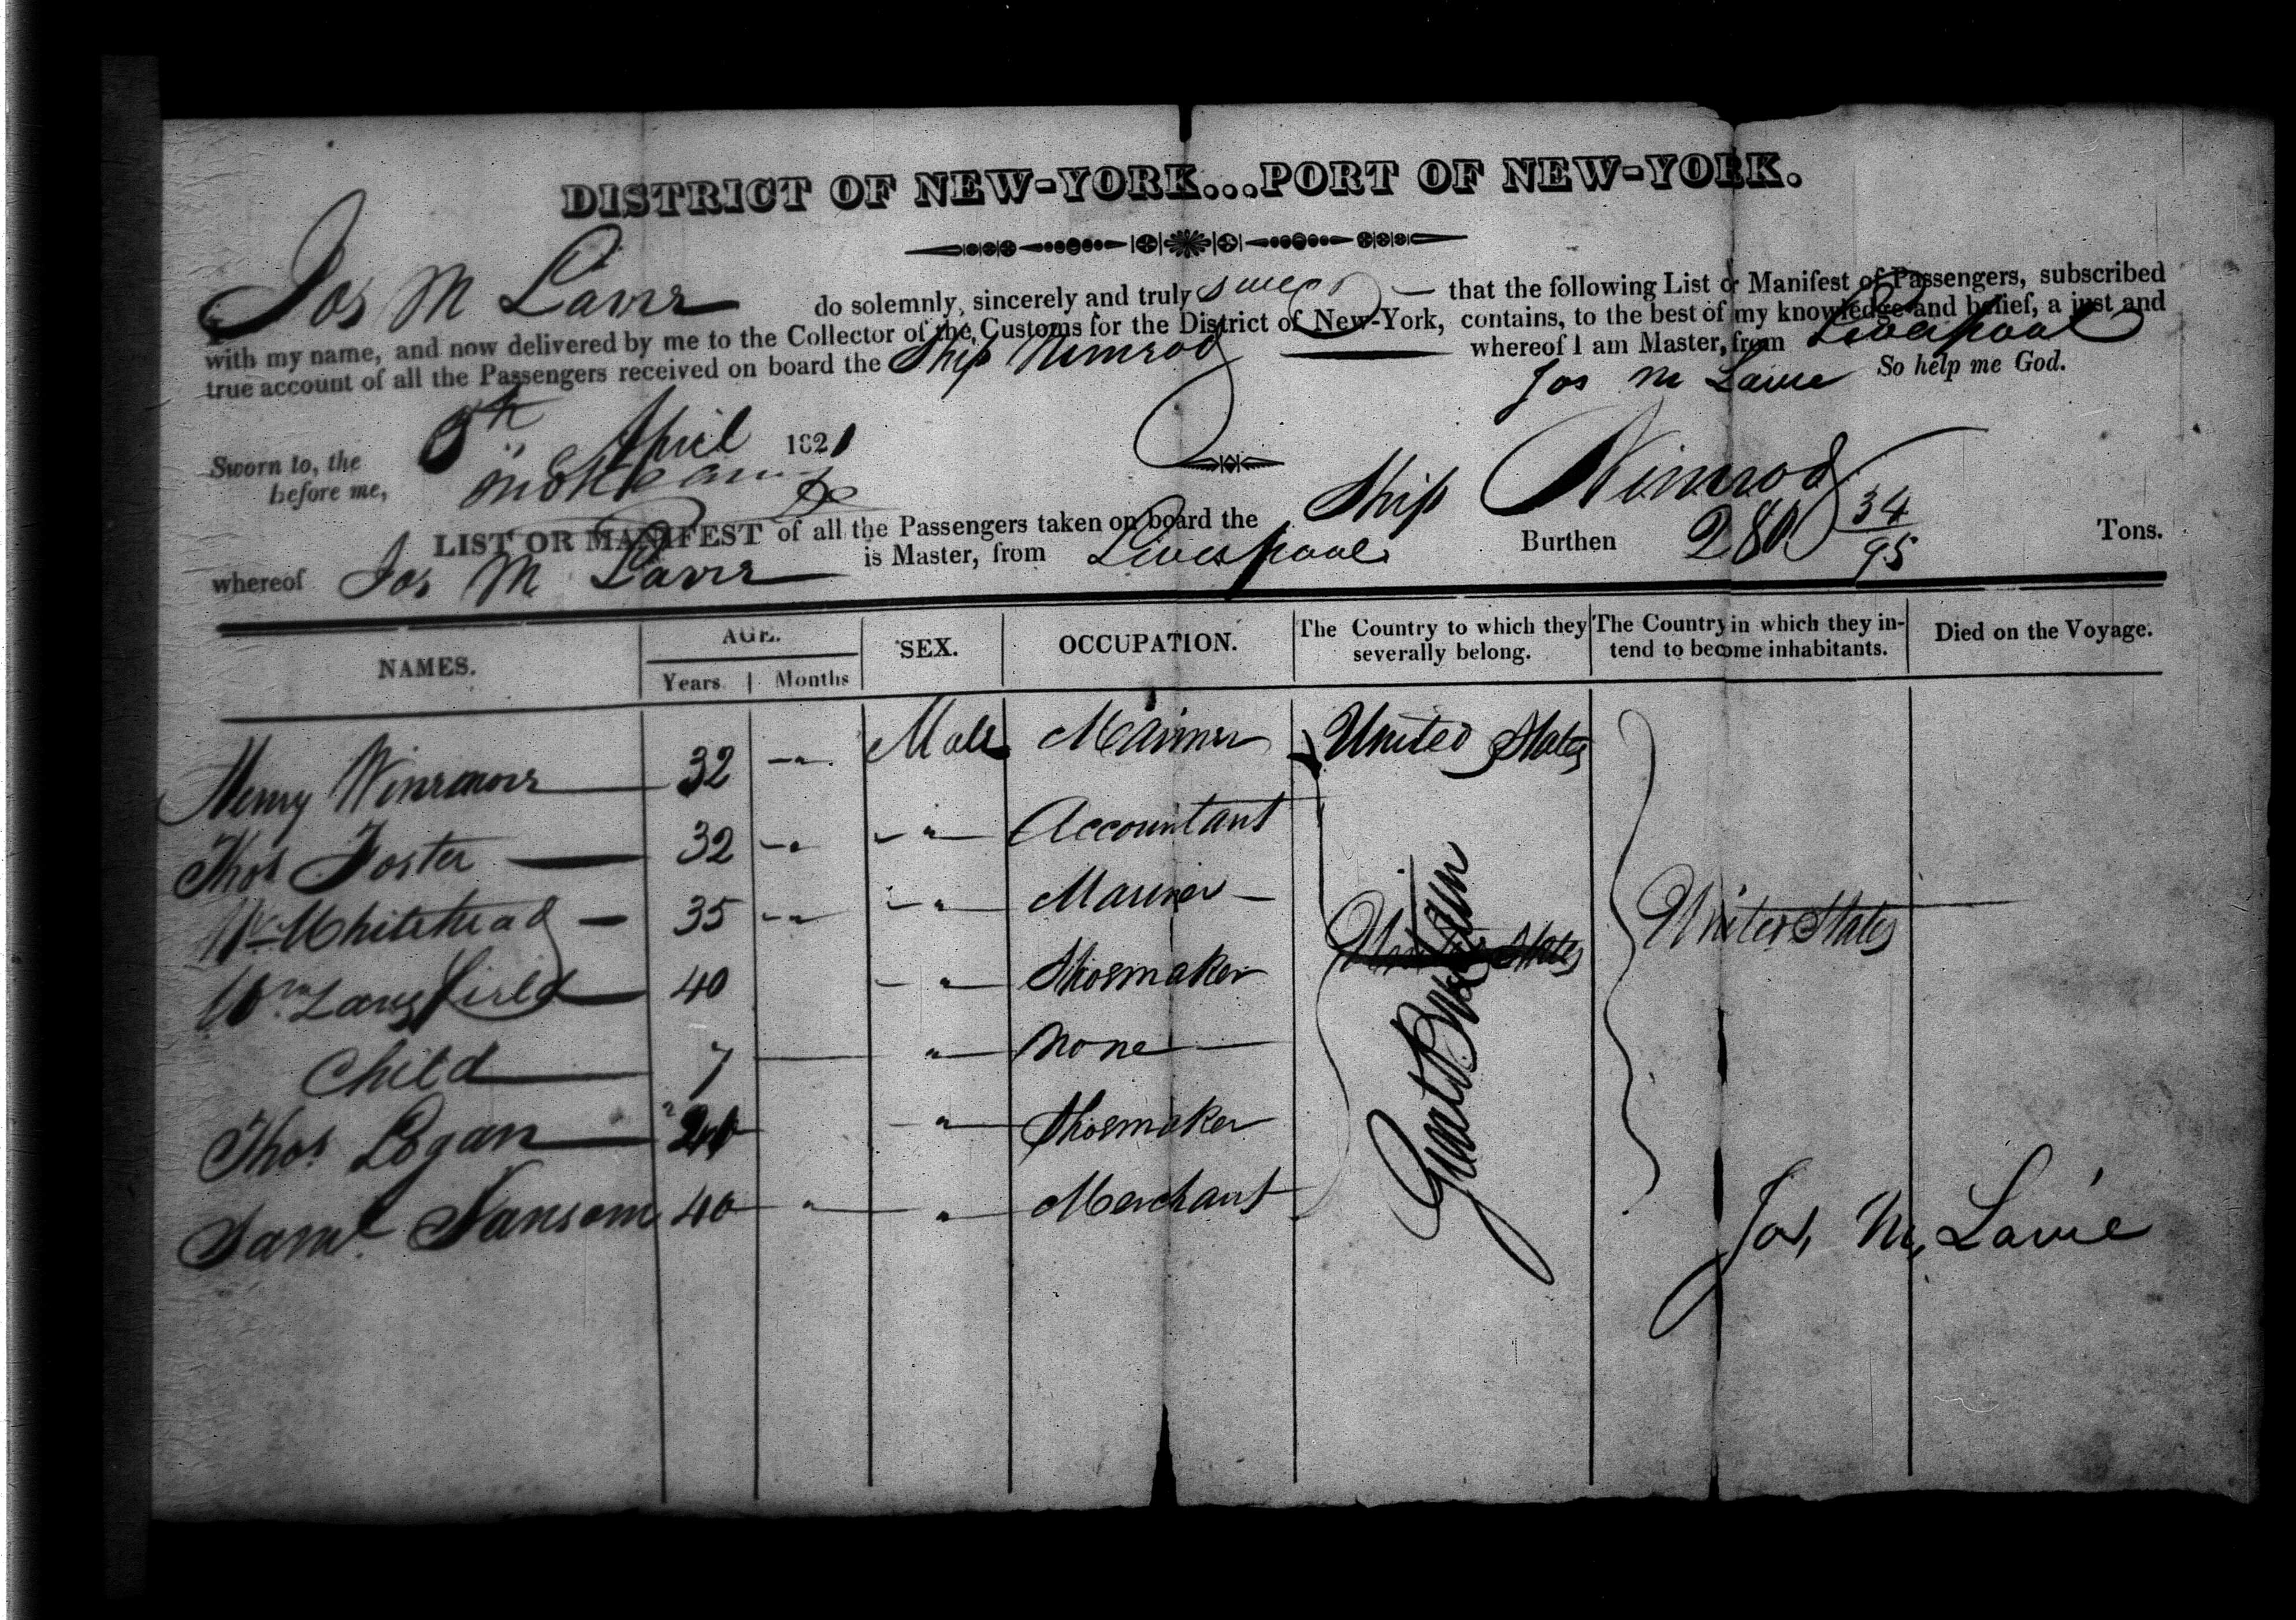 DISTRICT OF NEW-YORK...PORT OF NEW-YORK.
Jos M Larie do solemnly, sincerely and truly swear that the following List or Manifest of Passengers, subscribed
with my name, and now delivered by me to the Collector of the Customs for the District of New-York, contains, to the best of my knowledge and belief, a just and
true account of all the Passengers received on board the Ship Nimrod whereof I am Master, from Liverpool
Jos M Larie So help me God.
Sworn to, the 5th April 1821
before me,
Ship Nimrod
LIST OR MANIFEST of all the Passengers taken on board the
whereof Jos M Larie is Master, from Liverpool Burthen 280 34/95 Tons.
NAMES. AGE. SEX. OCCUPATION. The Country to which they severally belong. The Country in which they intend to become inhabitants. Died on the Voyage.
Years Months
Henry 32 Male Mariner United States
Thos Foster 32 " Accountant
Wm Whitehead 35 " Mariner
Wm Langfield 40 " Shoemaker United States
Child 7 " none
Thos Logan " Shoemaker
Saml Sansom 40 " Merchant
Great Britain
United States
Jos, M, Larie